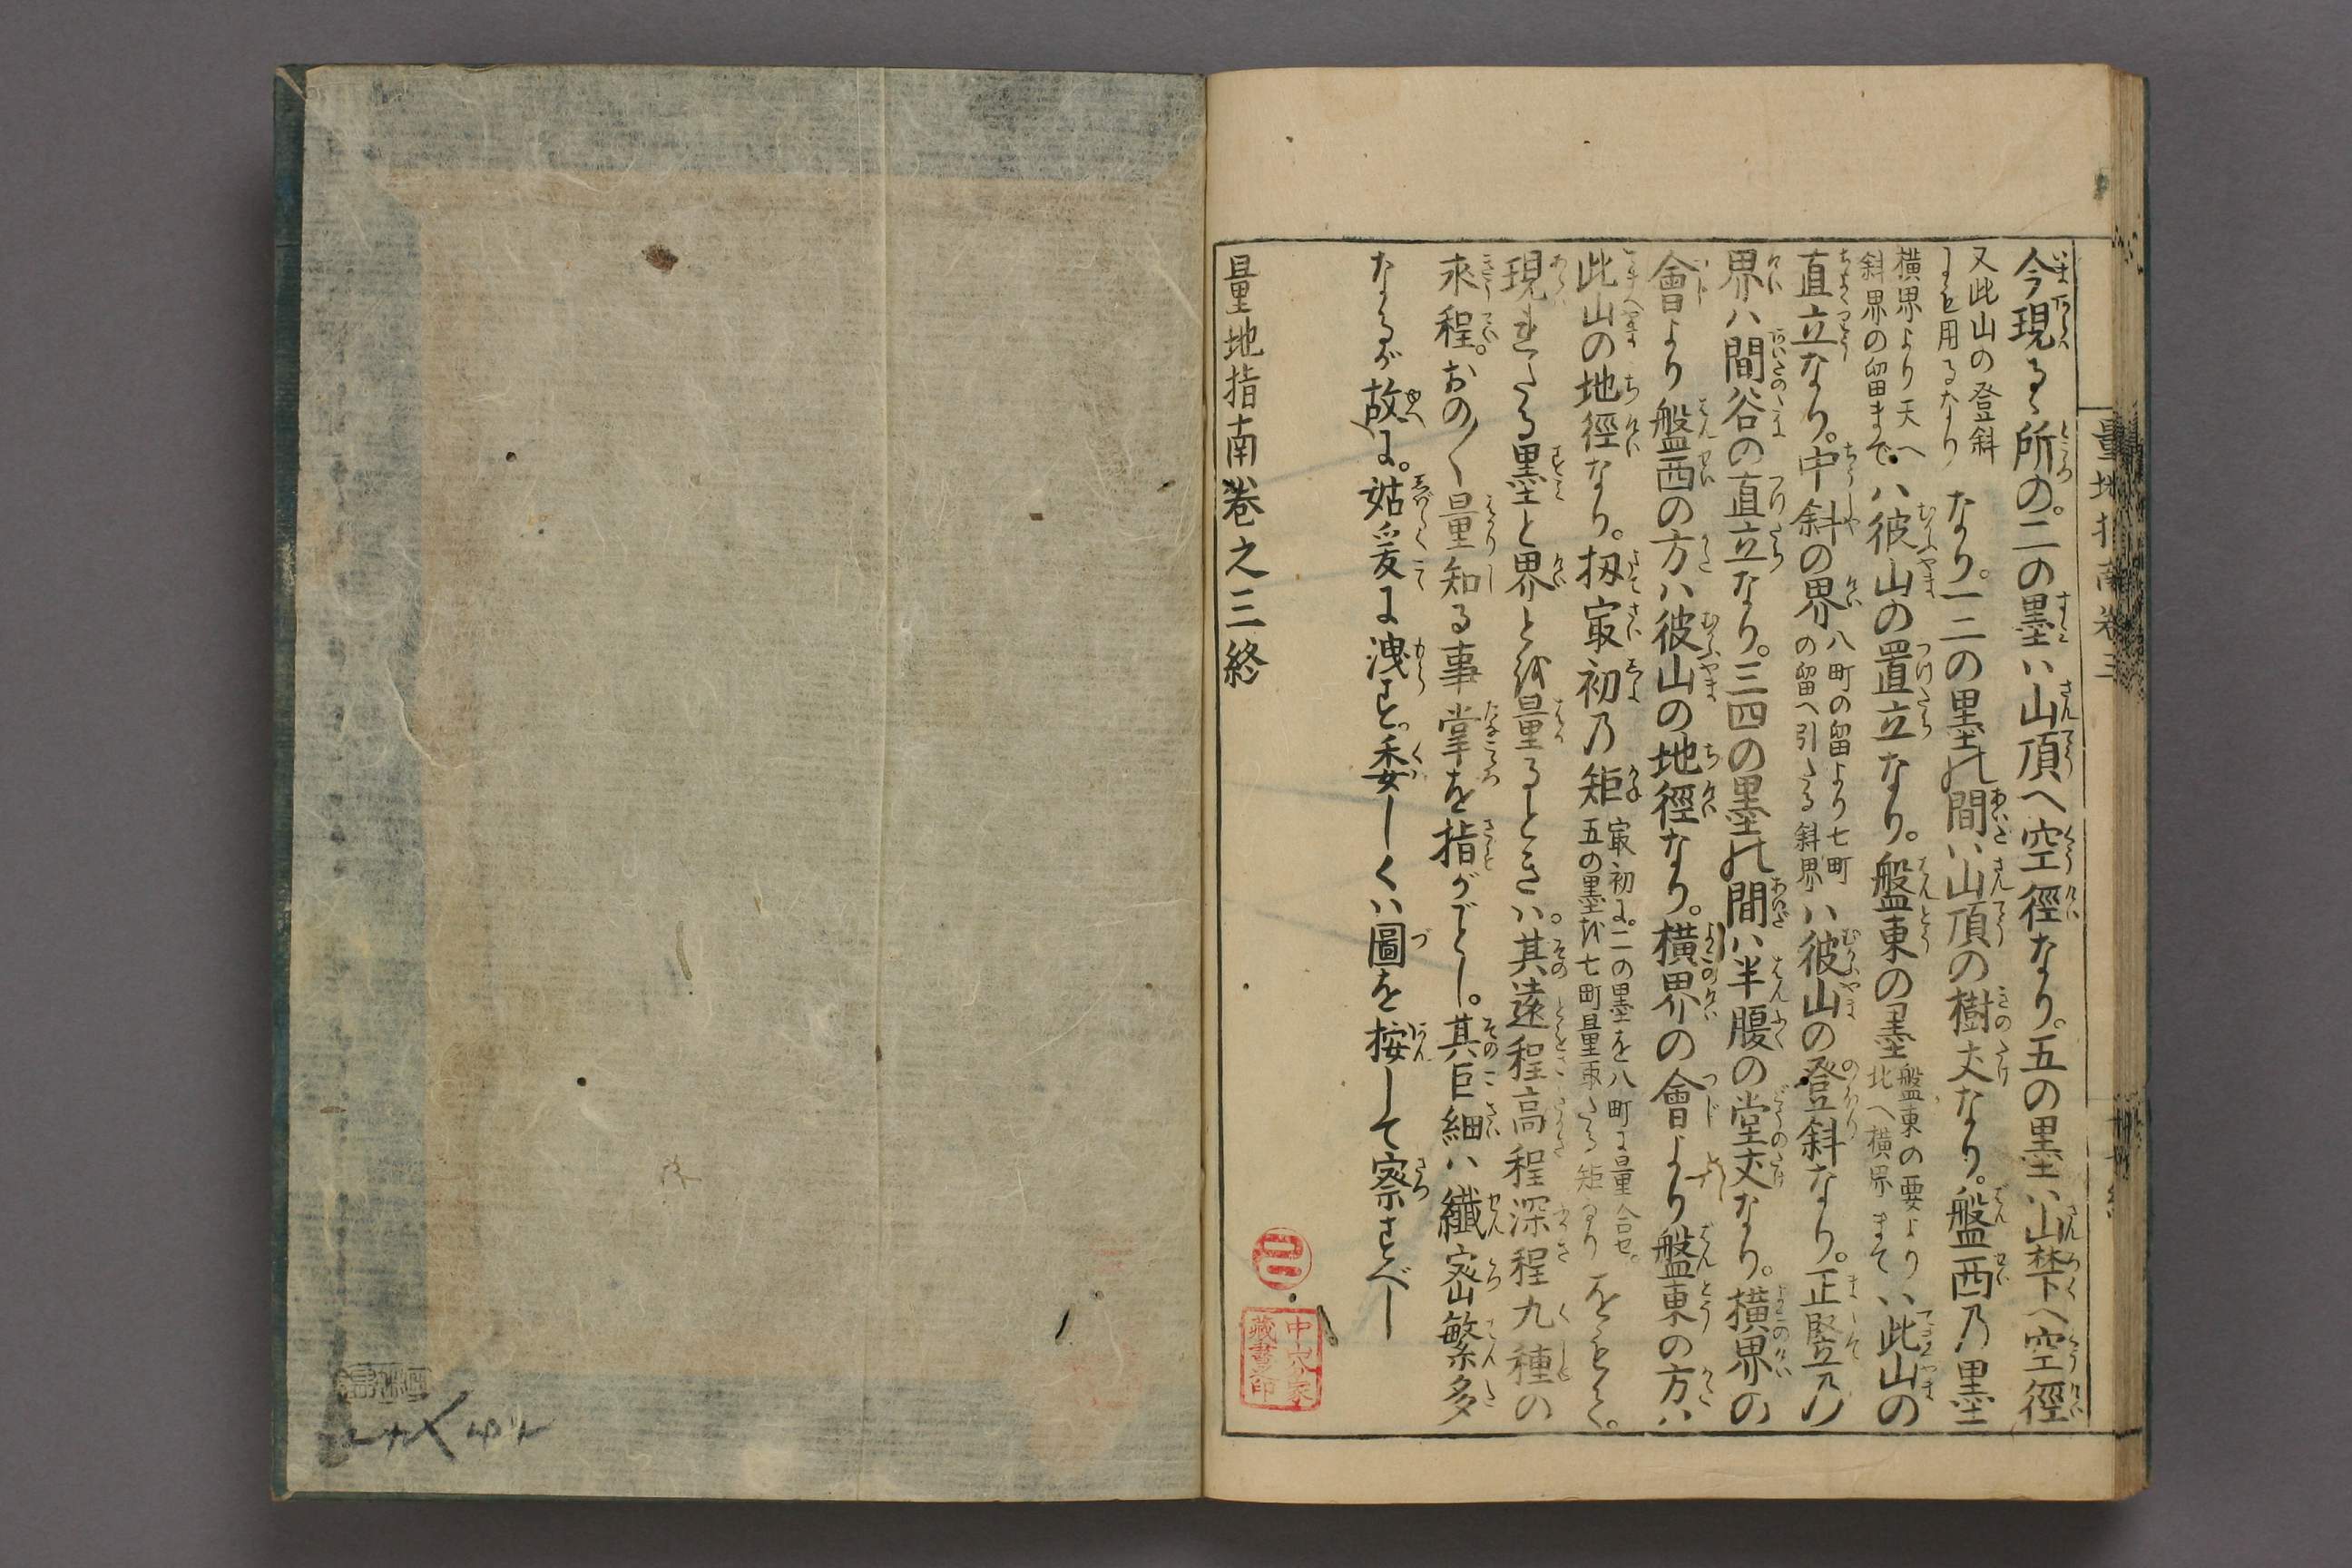 今現る所の。二の墨ハ山頂へ空徑なり。五の墨ハ山禁下へ空徑
又此山の登斜
にも用るなり
なり。一二の墨の間ハ山頂の樹丈なり。盤西乃墨
横界より天へ
斜界の留まで
ハ彼山の置立なり。盤東の墨
盤東の要より
北へ横界まて
ハ此山の
直立なり。中斜の界
八町の留より七町
の留へ引たる斜界
ハ彼山の登斜なり。正竪乃
界ハ間谷の直立なり。三四の墨の間ハ半腹の堂丈なり。横界の
會より盤西の方ハ彼山の地徑なり。横界の會より盤東の方ハ
此山の地徑なり。扨㝡初乃矩
㝡初に。二の墨を八町に量合せ。
五の墨を七町量取たる矩なり
をもて。
現れたる墨と界とを量るときハ。其遠程高程深程九種の
求程。おの〳〵量知る事掌を指がごとし。其巨細ハ纎密繁多
なるが故に。姑爰に洩すと。委しくハ圖を按して察すべし
量地指南巻之三終
中宍家
藏書印
量地指南卷三